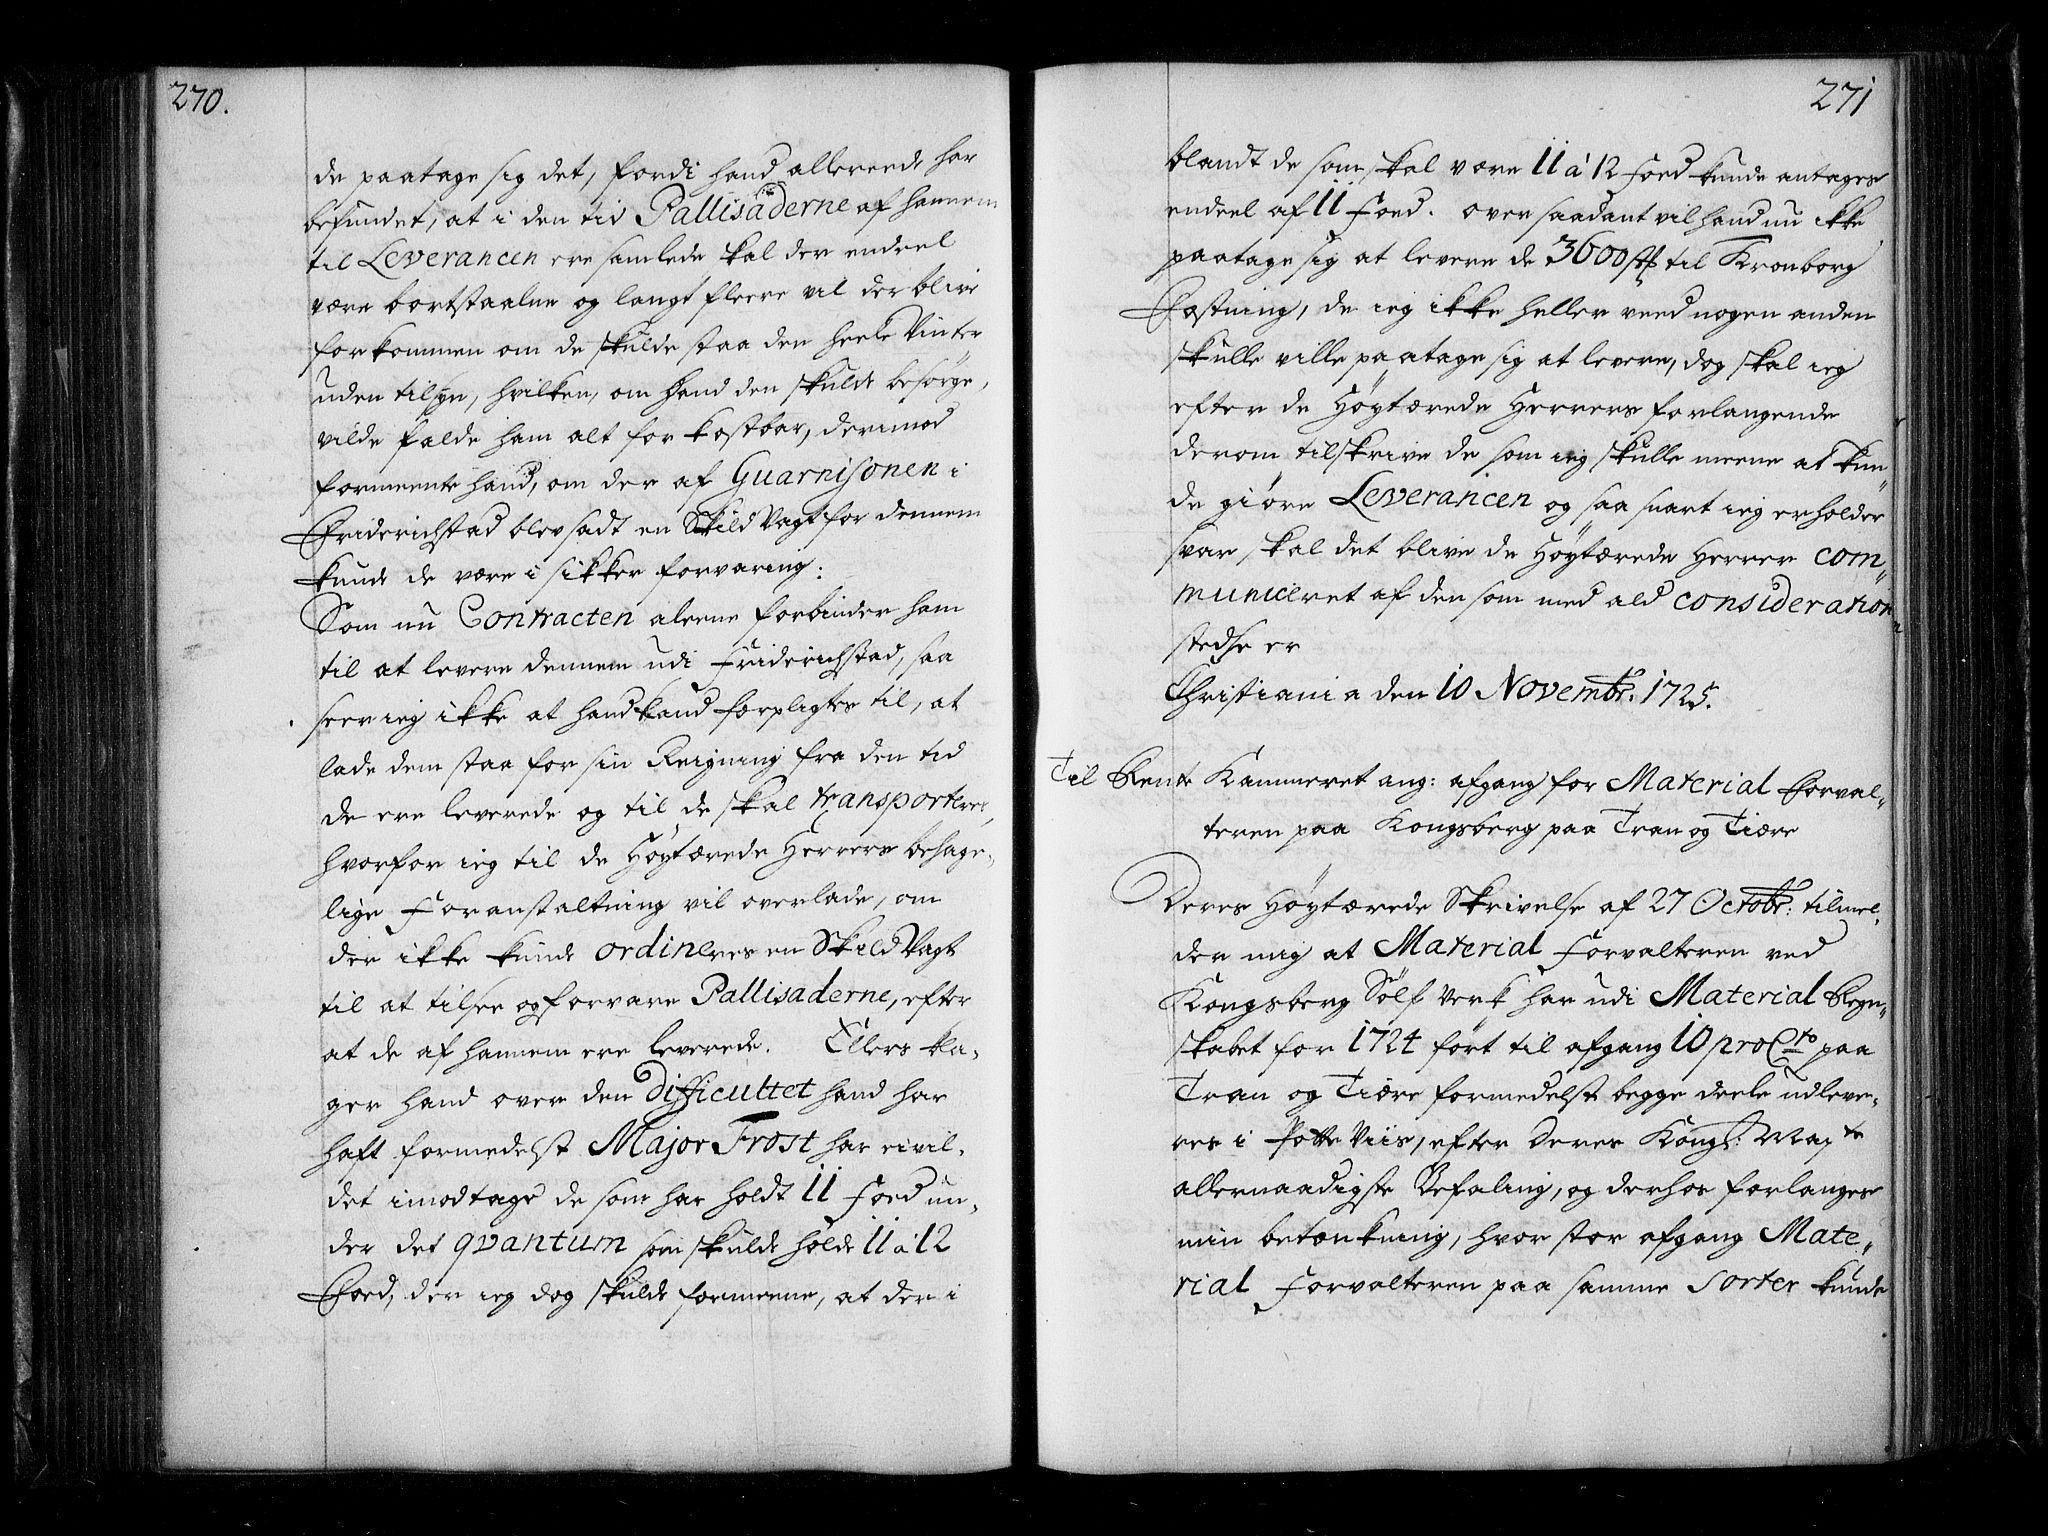 270.
de paatage sig det, fordi hand allereede har
befundet, at i den tid Pallisaderne af hannem
til Leverancen ere samlede skal der endeel
være bortstaalne og langt fleere vil der blive
forkommen om de skulde staa den heele Vinter
uden tilsyn, hvilken, om hand den skulde besørge,
vilde falde ham alt for kostbar, derimod
formeente hand, om der af Guarnisonen i
Friderichstad blev sadt en Skild Vagt for dennem
kunde de være i sikker forvaring:
Som nu Contracten aleene forbinder ham
til at levere dennem udi Friderichstad, saa
seer ieg ikke at hand kand forpligtes til, at
lade dem staa for sin Reigning fra den tid
de ere leverede og til de skal transporteres,
hvorfor ieg til de Høytærede Herrers behage„
lige Foranstaltning vil overlade, om
der ikke kunde ordineres en Skild Vagt
til at tilsee og forvare Pallisaderne, efter
at de af hannem ere leverede. Ellers kla„
ger hand over den Difficultet hand har
haft formedelst Major Frost har eivil„
det imodtage de som har holdt 11 Foed un„
der det qvantum som skulde holde 11 a 12
Foed, der ieg dog skulde formeene, at der i
271
blandt de som skal være 11 á 12 Foed kunde antages
endeel af 11 Foed. over saadant vil hand nu ikke
paatage sig at levere de 3600 st til Kronborg
Fæstning, de ieg ikke heller veed nogen anden
skulle ville paatage sig at levere, dog skal ieg
efter de Høytærede Herrers forlangende
derom tilskrive de som ieg skulle meene at kun„
de giøre Leverancen og saa snart ieg erholder
svar skal det blive de Høytærede Herrer com„
municeret af den som med ald consideration
stedse er
Christiania den 10 Novembr: 1725.
Til Rente Kammeret ang: afgang for Material Forval„
teren paa Kongsberg paa Tran og Tiære
Deres Høytærede Skrivelse af 27 Octobr: tilmel„
der mig at Material Forvalteren ved
Kongsberg Sølf Verk har udi Material Regn„
skabet for 1724 ført til afgang 10 pro Cto paa
Tran og Tiære formedelst begge deele udleve„
res i Potte Viis, efter Deres Kongl: Mayte
allernaadigste Befaling, og derhos forlanges
min betænkning, hvor stor afgang Mate„
rial Forvalteren paa samme Sorter kunde